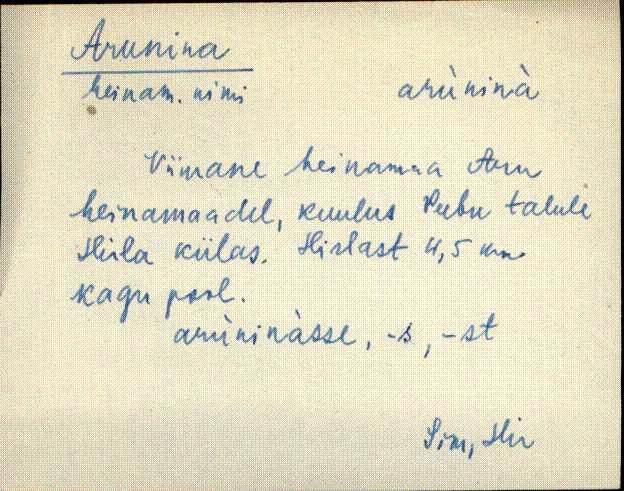 Arunina
heinam. nimi arùninà
Viimane heinamaa Aru
heinamaadel, kuulus Peebu talule
Hirla külas. Hirlast 4,5 km
kagu pool.
arùninàsse, -s, -st
Sim, Hir